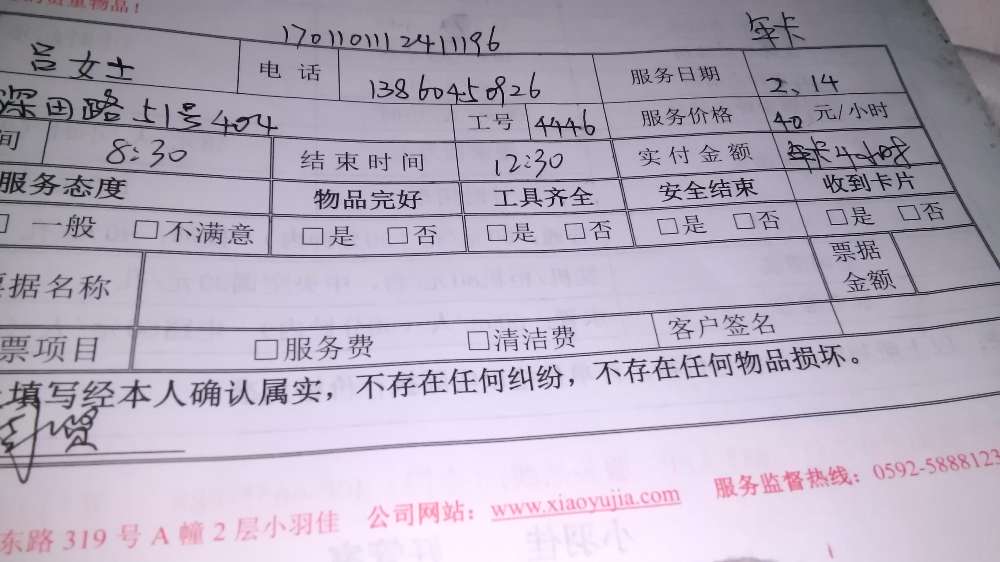 的贵重物品！
1701101112411196 年卡
吕女士 电话 13860450926 服务日期 2.14
深田路51号404 工号 4446 服务价格 40元/小时
间 8:30 结束时间 12:30 实付金额 年卡
服务态度 物品完好 工具齐全 安全结束 收到卡片
□一般 □不满意 □是 □否 □是 □否 □是 □否 □是 □否
票据名称 票据金额
票项目 □服务费 □清洁费 客户签名
填写经本人确认属实，不存在任何纠纷，不存在任何物品损坏。
东路319号A幢2层小羽佳 公司网站：www.xiaoyujia.com 服务监督热线：0592-5888123